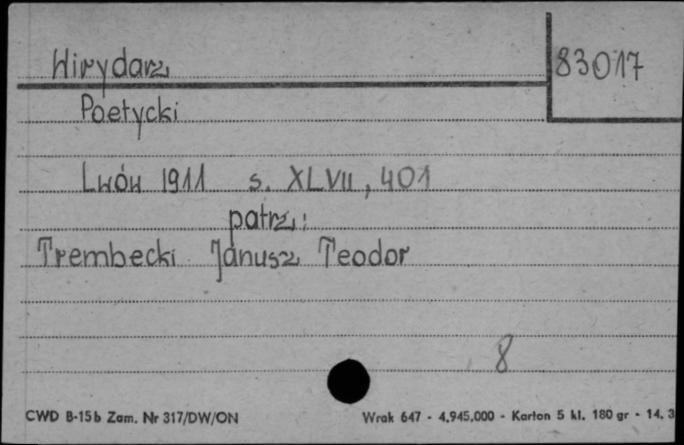 Wirydarz
83017
Poetycki
Lwów 1911 s. XLVII, 401
patrz:
Trembecki Janusz Teodor
8
CWD B-15b Zam. Nr 317/DW/ON
Wrak 647 - 4.945.000 - Karton 5 kl. 180 gr - 14. 3